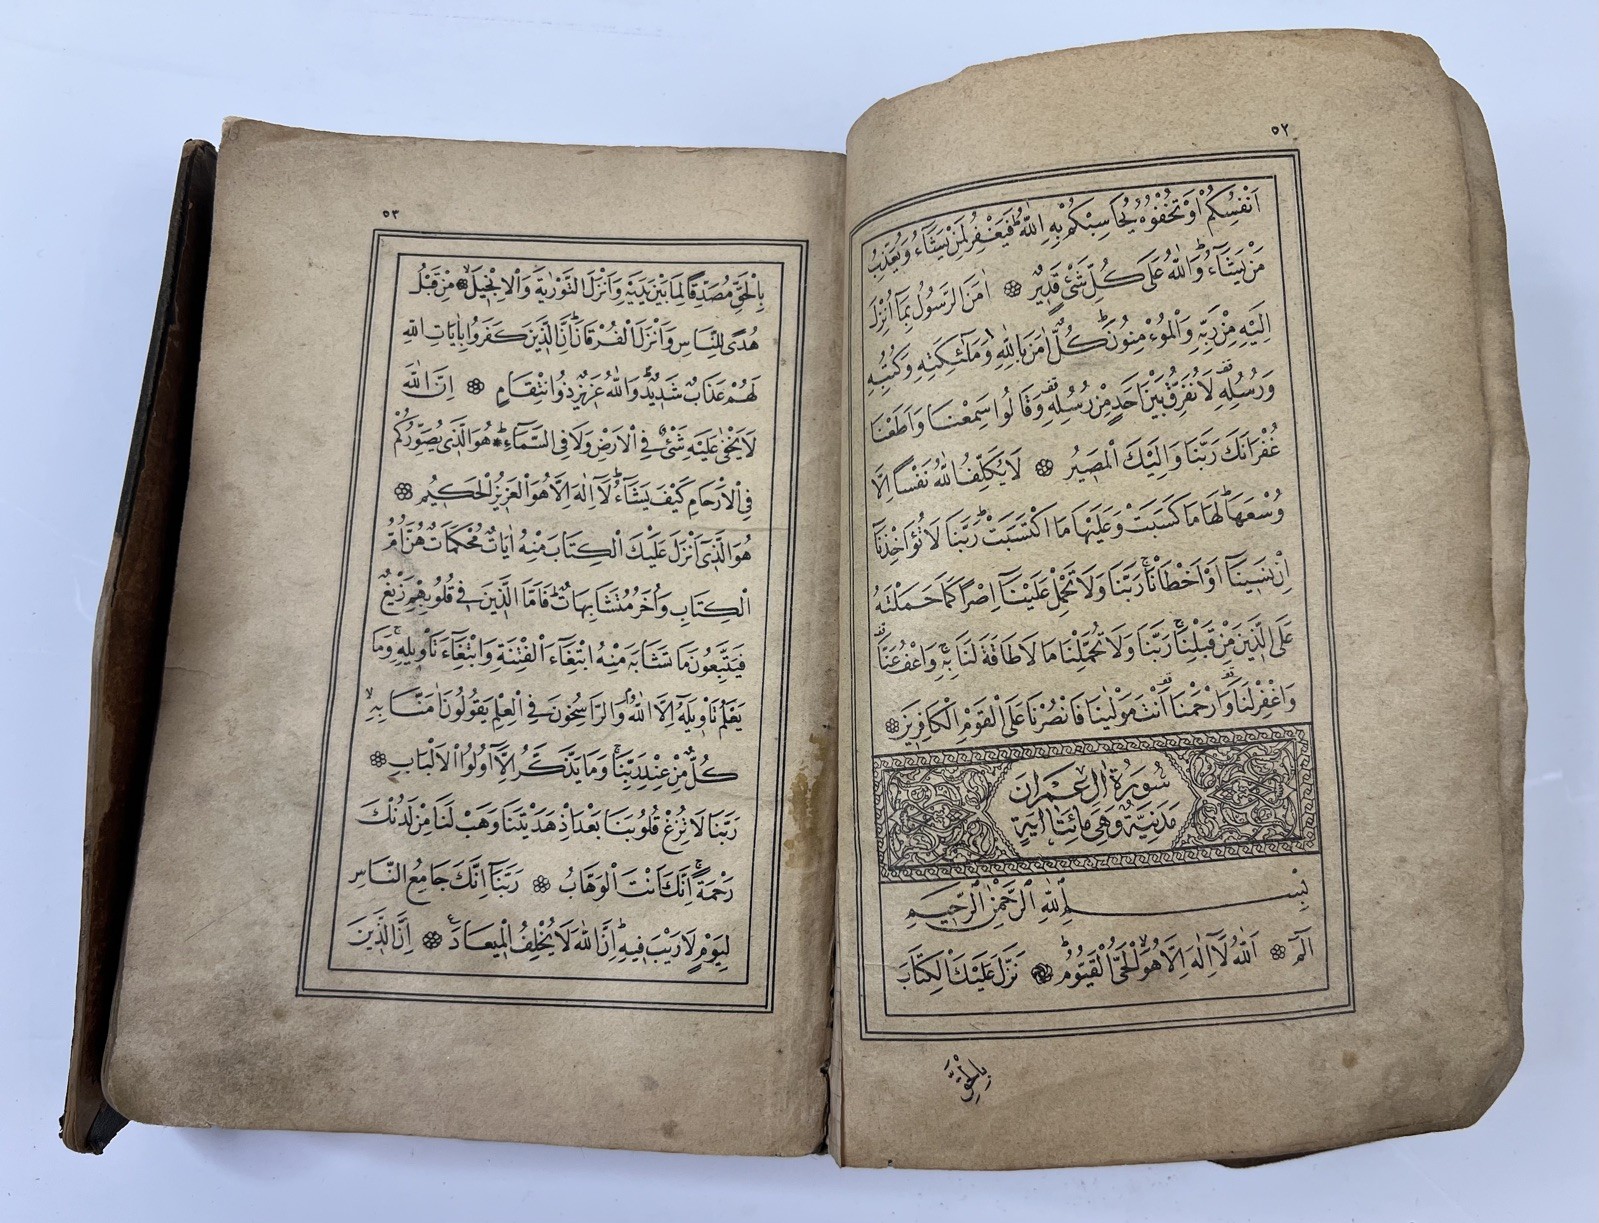 ٥٢
اَنْفُسِكُمْ اَوْ تُخْفُوهُ يُحَاسِبْكُمْ بِهِ اللّٰهُ فَيَغْفِرُ لِمَنْ يَشَاۤءُ وَيُعَذِّبُ
مَنْ يَشَاۤءُ وَاللّٰهُ عَلٰى كُلِّ شَيْءٍ قَدِيرٌ ۞ اٰمَنَ الرَّسُولُ بِمَاۤ اُنْزِلَ
اِلَيْهِ مِنْ رَبِّهِ وَالْمُؤْمِنُونَ كُلٌّ اٰمَنَ بِاللّٰهِ وَمَلٰۤئِكَتِهِ وَكُتُبِهِ
وَرُسُلِهِ لَا نُفَرِّقُ بَيْنَ اَحَدٍ مِنْ رُسُلِهِ وَقَالُوا سَمِعْنَا وَاَطَعْنَا
غُفْرَانَكَ رَبَّنَا وَاِلَيْكَ الْمَصِيرُ ۞ لَا يُكَلِّفُ اللّٰهُ نَفْسًا اِلَّا
وُسْعَهَا لَهَا مَا كَسَبَتْ وَعَلَيْهَا مَا اكْتَسَبَتْ رَبَّنَا لَا تُؤَاخِذْنَاۤ
اِنْ نَسِينَاۤ اَوْ اَخْطَاْنَا رَبَّنَا وَلَا تَحْمِلْ عَلَيْنَاۤ اِصْرًا كَمَا حَمَلْتَهُ
عَلَى الَّذِينَ مِنْ قَبْلِنَا رَبَّنَا وَلَا تُحَمِّلْنَا مَا لَا طَاقَةَ لَنَا بِهِ وَاعْفُ عَنَّا
وَاغْفِرْ لَنَا وَارْحَمْنَا اَنْتَ مَوْلٰينَا فَانْصُرْنَا عَلَى الْقَوْمِ الْكَافِرِينَ ۞
سُورَةُ اٰلِ عِمْرَانَ
مَدَنِيَّةٌ وَهِيَ مِائَتَا اٰيَةٍ
بِسْمِ اللّٰهِ الرَّحْمٰنِ الرَّحِيمِ
الۤمۤ ۞ اَللّٰهُ لَاۤ اِلٰهَ اِلَّا هُوَ الْحَيُّ الْقَيُّومُ ۞ نَزَّلَ عَلَيْكَ الْكِتَابَ
بِالْحَقِّ
٥٣
بِالْحَقِّ مُصَدِّقًا لِمَا بَيْنَ يَدَيْهِ وَاَنْزَلَ التَّوْرٰيةَ وَالْاِنْجِيلَ ۞ مِنْ قَبْلُ
هُدًى لِلنَّاسِ وَاَنْزَلَ الْفُرْقَانَ اِنَّ الَّذِينَ كَفَرُوا بِاٰيَاتِ اللّٰهِ
لَهُمْ عَذَابٌ شَدِيدٌ وَاللّٰهُ عَزِيزٌ ذُو انْتِقَامٍ ۞ اِنَّ اللّٰهَ
لَا يَخْفٰى عَلَيْهِ شَيْءٌ فِي الْاَرْضِ وَلَا فِي السَّمَاۤءِ ۞ هُوَ الَّذِي يُصَوِّرُكُمْ
فِي الْاَرْحَامِ كَيْفَ يَشَاۤءُ لَاۤ اِلٰهَ اِلَّا هُوَ الْعَزِيزُ الْحَكِيمُ ۞
هُوَ الَّذِيۤ اَنْزَلَ عَلَيْكَ الْكِتَابَ مِنْهُ اٰيَاتٌ مُحْكَمَاتٌ هُنَّ اُمُّ
الْكِتَابِ وَاُخَرُ مُتَشَابِهَاتٌ فَاَمَّا الَّذِينَ فِي قُلُوبِهِمْ زَيْغٌ
فَيَتَّبِعُونَ مَا تَشَابَهَ مِنْهُ ابْتِغَاۤءَ الْفِتْنَةِ وَابْتِغَاۤءَ تَاْوِيلِهِ وَمَا
يَعْلَمُ تَاْوِيلَهُۤ اِلَّا اللّٰهُ وَالرَّاسِخُونَ فِي الْعِلْمِ يَقُولُونَ اٰمَنَّا بِهِ
كُلٌّ مِنْ عِنْدِ رَبِّنَا وَمَا يَذَّكَّرُ اِلَّاۤ اُولُوا الْاَلْبَابِ ۞
رَبَّنَا لَا تُزِغْ قُلُوبَنَا بَعْدَ اِذْ هَدَيْتَنَا وَهَبْ لَنَا مِنْ لَدُنْكَ
رَحْمَةً اِنَّكَ اَنْتَ الْوَهَّابُ ۞ رَبَّنَاۤ اِنَّكَ جَامِعُ النَّاسِ
لِيَوْمٍ لَا رَيْبَ فِيهِ اِنَّ اللّٰهَ لَا يُخْلِفُ الْمِيعَادَ ۞ اِنَّ الَّذِينَ